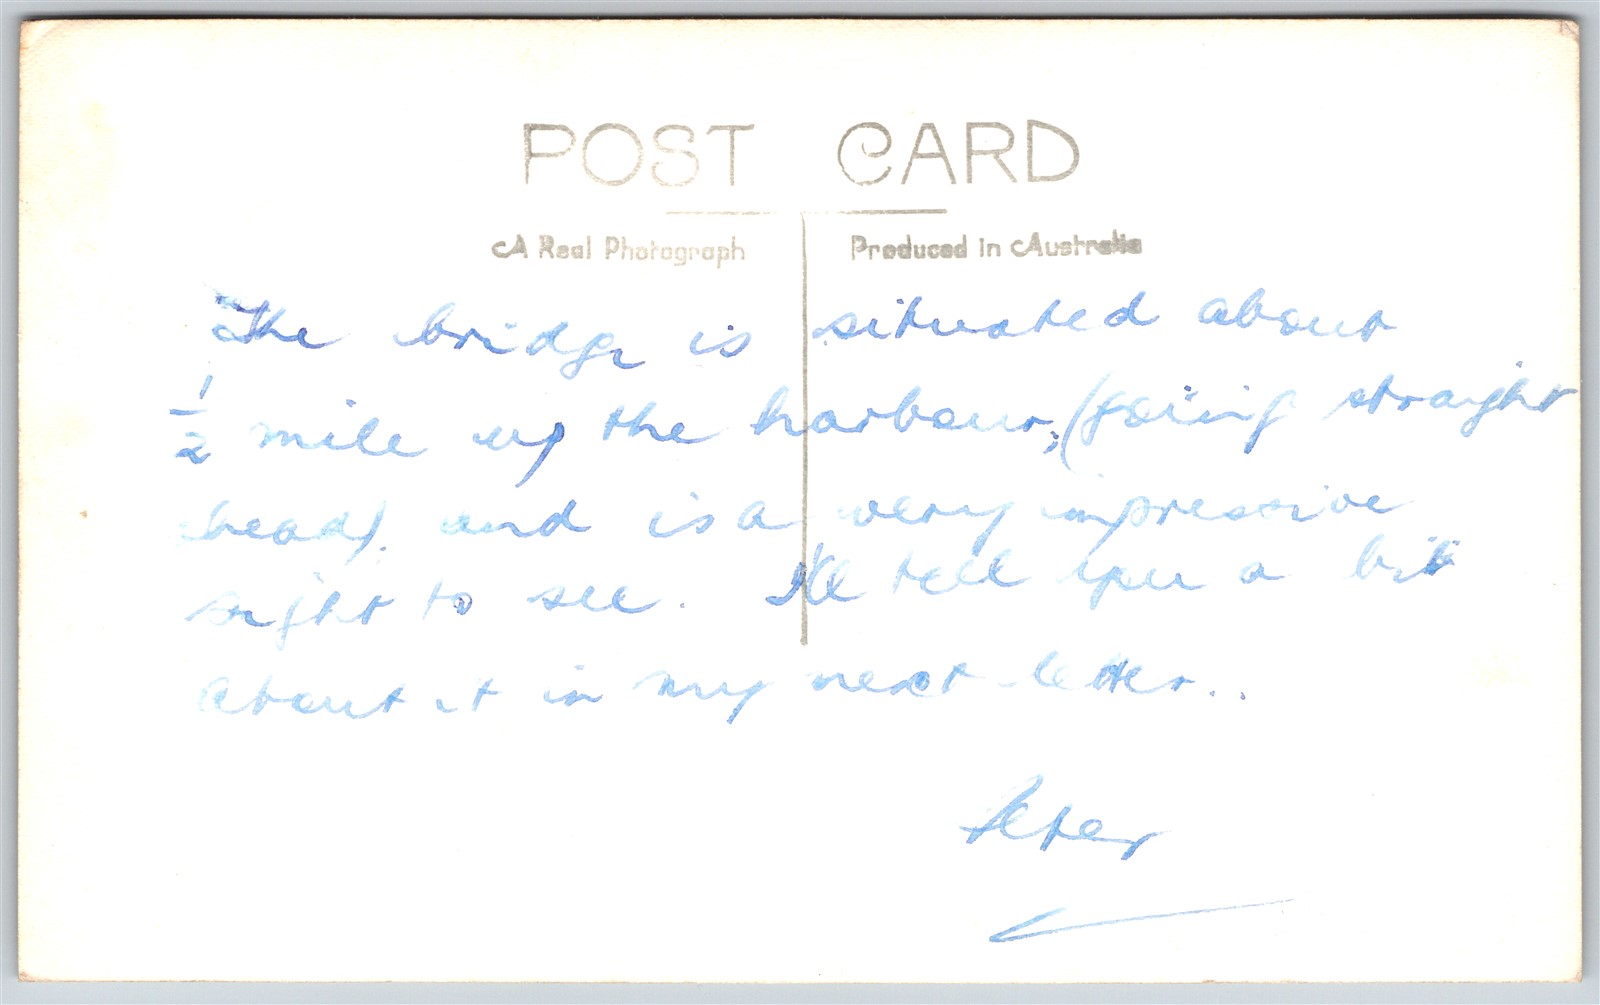 POST CARD
A Real Photograph Produced in Australia
The bridge is situated about
½ mile up the harbour, (going straight
ahead) and is a very impressive
sight to see. I'll tell you a bit
about it in my next letter..
Peter